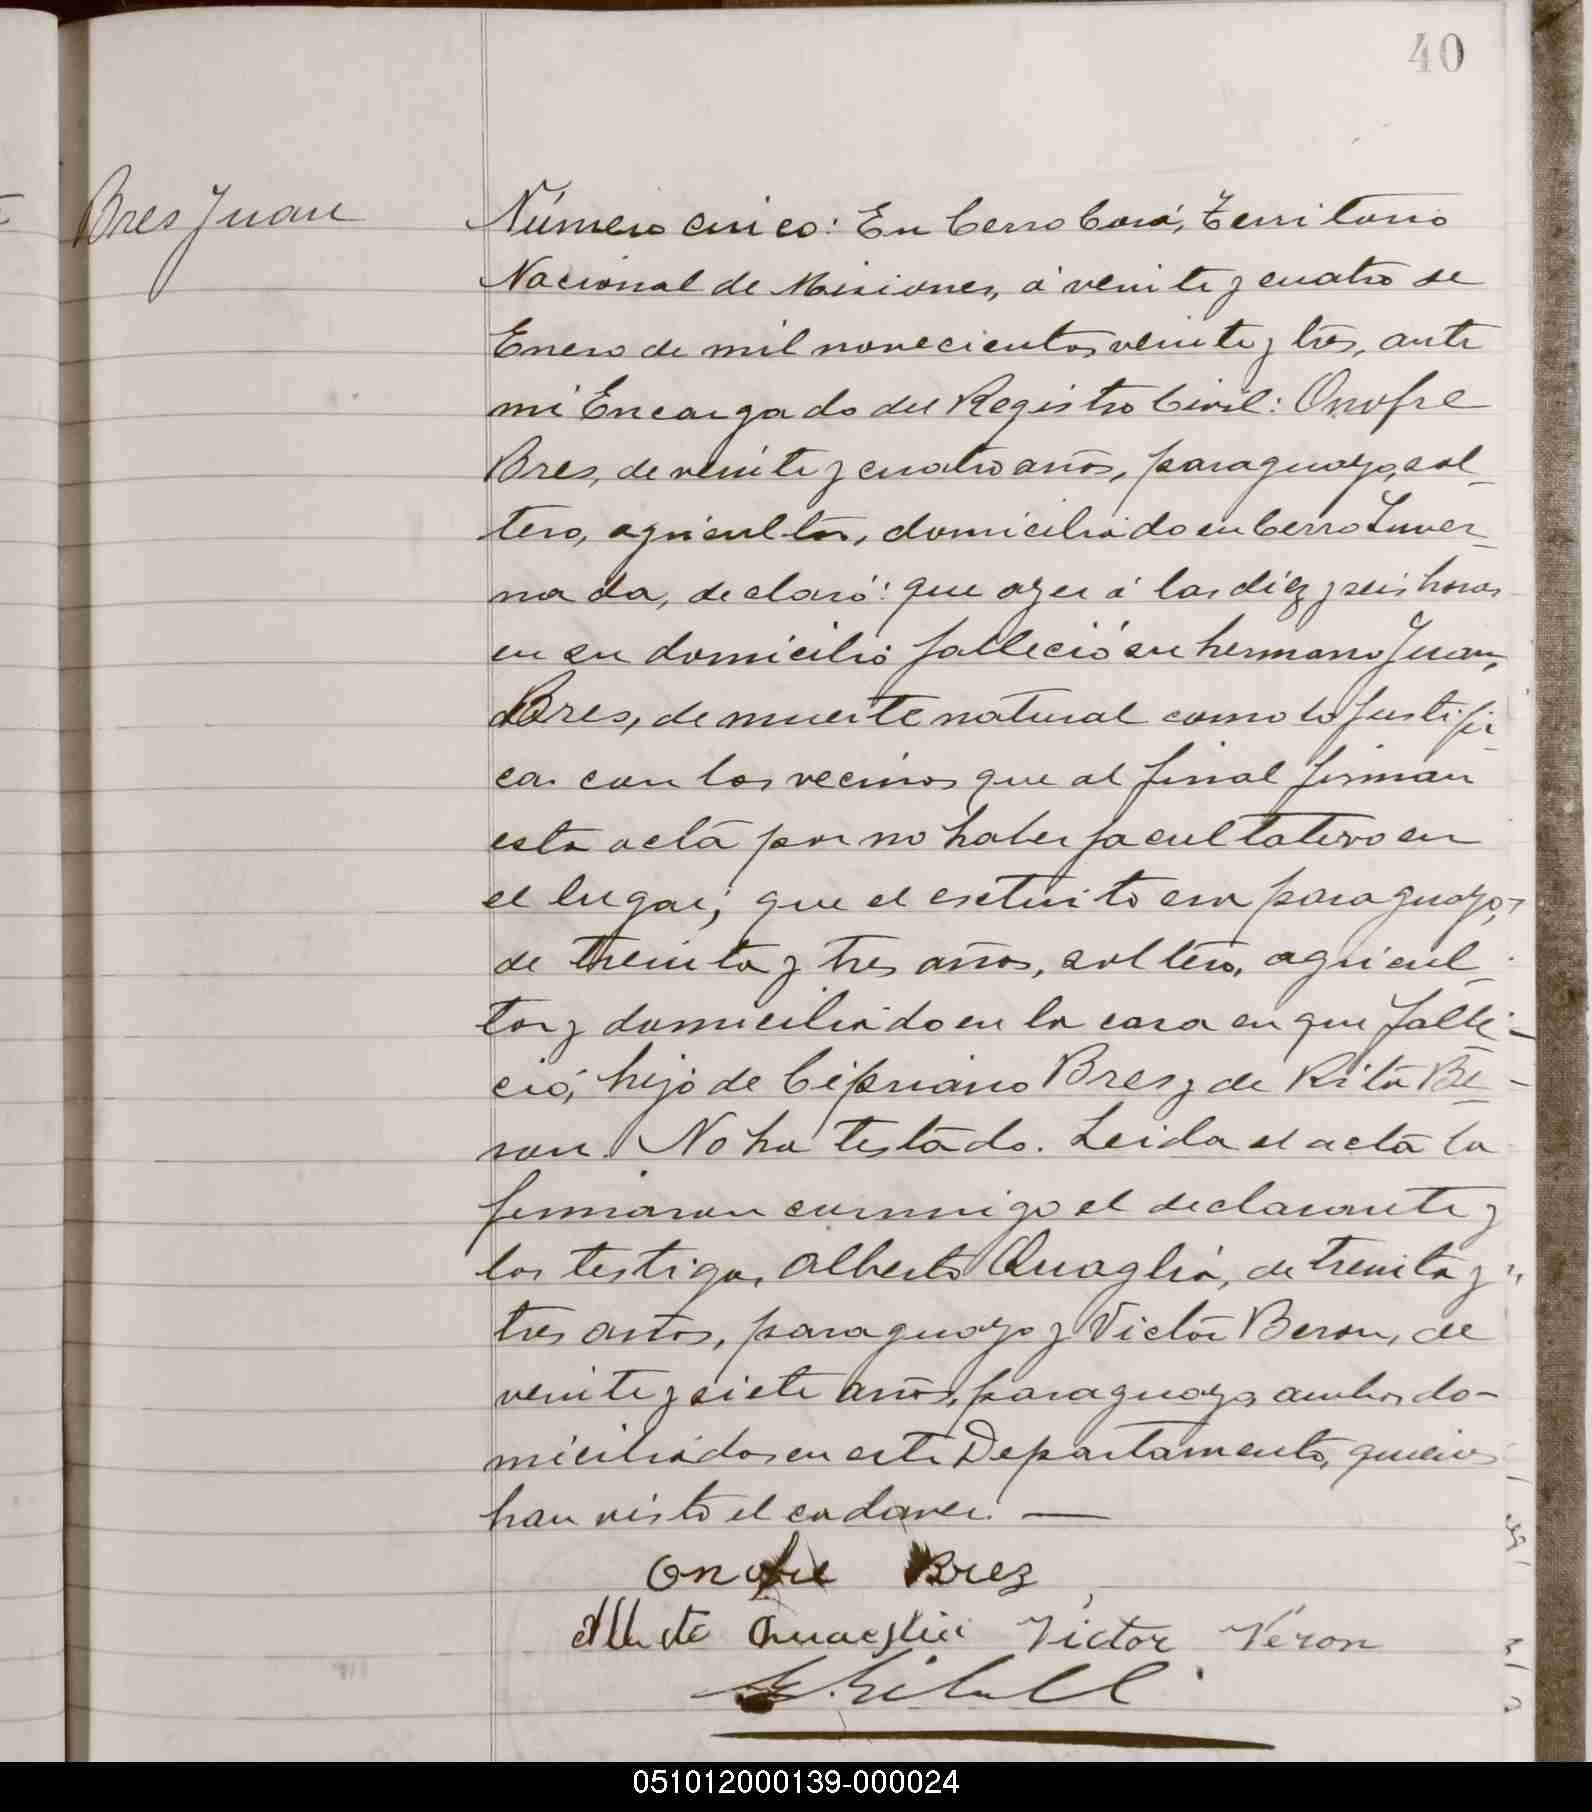 40
Bres Juan
Número cinco: En Cerro Corá, Territorio
Nacional de Misiones, á veinte y cuatro de
Enero de mil novecientos veinte y tres, ante
mi Encargado del Registro Civil: Onofre
Bres, de veinte y cuatro años, paraguayo, sol-
tero, agricultor, domiciliado en Cerro Inver-
nada, declaró: que ayer á las diez y seis horas
en su domicilio falleció su hermano Juan
Bres, de muerte natural como lo justifi-
ca con los vecinos que al final firman
esta acta por no haber facultativo en
el lugar; que el extinto era paraguayo,
de treinta y tres años, soltero, agricul-
tor y domiciliado en la casa en que falle-
ció, hijo de Cipriano Bres y de Rita Be-
ron. No ha testado. Leida el acta la
firmaron conmigo el declarante y
los testigos, Alberto Quaglia, de treinta y
tres años, paraguayo y Victor Beron, de
veinte y siete años, paraguayo, ambos do-
miciliados en este Departamento, quienes
han visto el cadaver. —
Onofre Brez
Alberto Quaglia Victor Veron
051012000139-000024